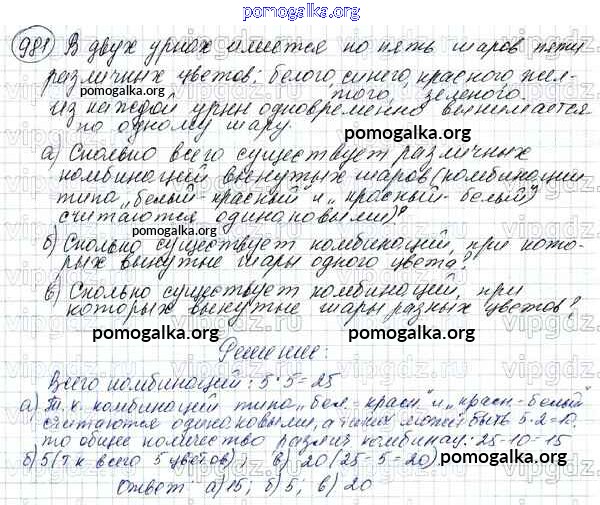 pomogalka.org
981 В двух урнах имеется по пять шаров пяти
различных цветов: белого, синего, красного, жел-
того, зеленого.
Из каждой урны одновременно вынимается
по одному шару.
pomogalka.org
а) Сколько всего существует различных
комбинаций вынутых шаров (комбинации
типа „белый-красный" и „красный-белый"
считаются одинаковыми)?
pomogalka.org
б) Сколько существует комбинаций, при кото-
рых вынутые шары одного цвета?
в) Сколько существует комбинаций, при
которых вынутые шары разных цветов?
pomogalka.org
pomogalka.org
Решение:
Всего комбинаций: 5·5=25
а) Т.к. комбинации типа „бел.-красн" и „красн.-белый"
считаются одинаковыми, а таких может быть 5·2=10,
то общее количество различ комбинац: 25-10=15
б) 5 (т к всего 5 цветов); в) 20 (25-5=20)
pomogalka.org
Ответ: а) 15; б) 5; в) 20